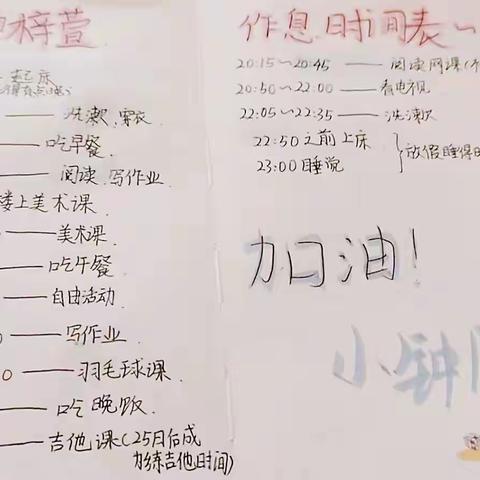 梓萱
起床
洗漱、穿衣
吃早餐
阅读、写作业
楼上美术课
美术课
吃午餐
自由活动
写作业
羽毛球课
吃晚饭
吉他课(25日后成
为练吉他时间)
作息时间表~
20:15~20:45 —— 阅读网课
20:50~22:00 —— 看电视
22:05~22:35 —— 洗漱
22:50之前上床
23:00睡觉
放假睡得
加油!
小钟